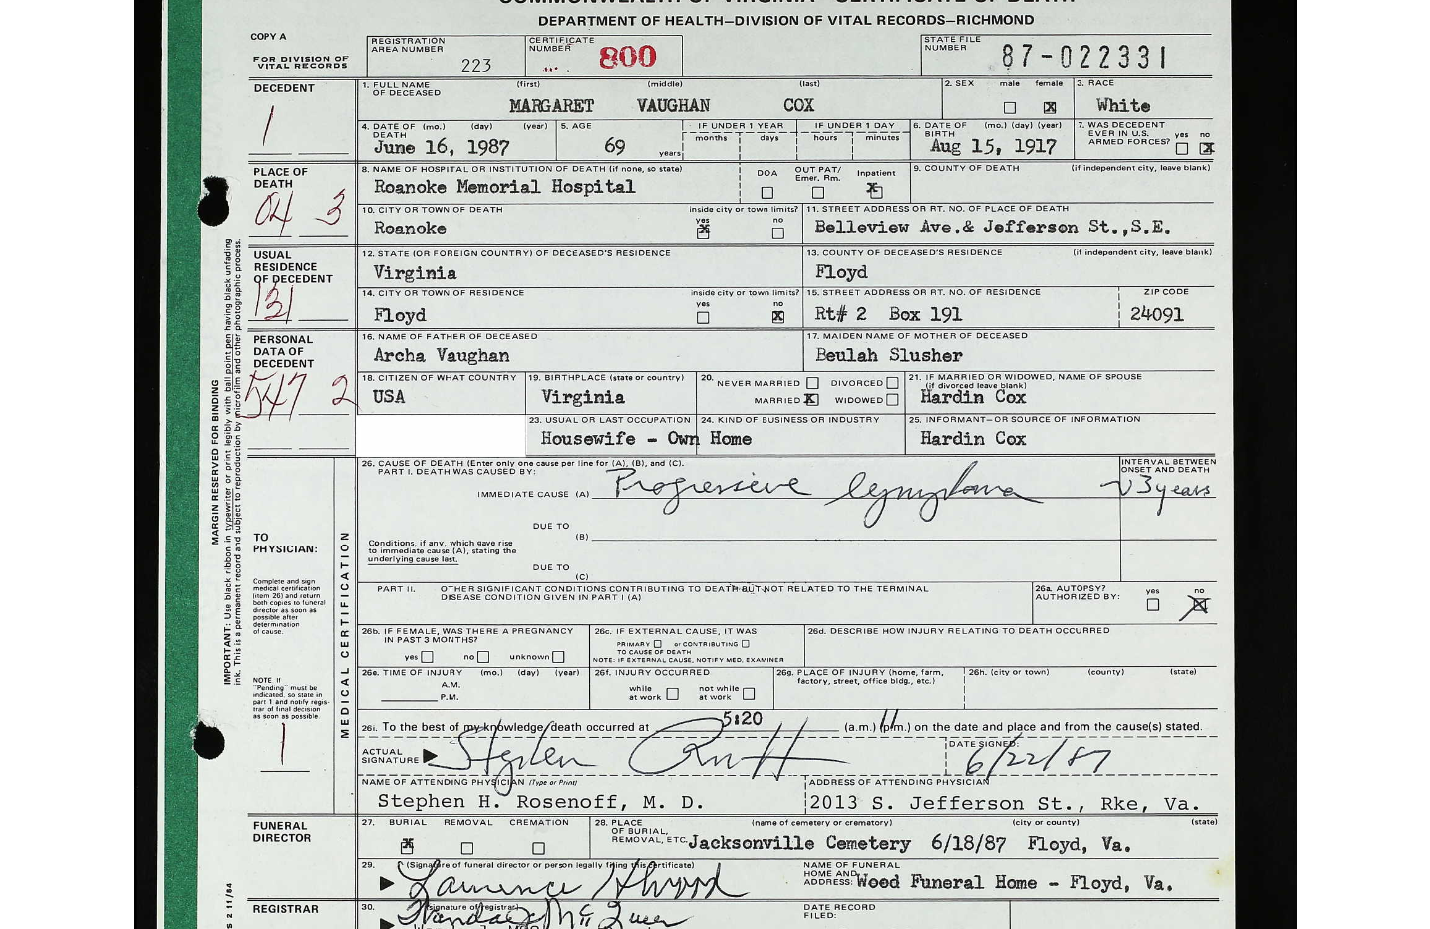 DEPARTMENT OF HEALTH—DIVISION OF VITAL RECORDS—RICHMOND
COPY A
FOR DIVISION OF VITAL RECORDS
REGISTRATION AREA NUMBER 223
CERTIFICATE NUMBER 800
STATE FILE NUMBER 87-022331
DECEDENT
1
1. FULL NAME OF DECEASED (first) (middle) (last)
MARGARET VAUGHAN COX
2. SEX male female
3. RACE
White
4. DATE OF DEATH (mo.) (day) (year)
June 16, 1987
5. AGE
69 years
IF UNDER 1 YEAR months days
IF UNDER 1 DAY hours minutes
6. DATE OF BIRTH (mo.) (day) (year)
Aug 15, 1917
7. WAS DECEDENT EVER IN U.S. ARMED FORCES? yes no
PLACE OF DEATH
04 3
8. NAME OF HOSPITAL OR INSTITUTION OF DEATH (if none, so state)
Roanoke Memorial Hospital
DOA OUT PAT/ Emer. Rm. Inpatient
9. COUNTY OF DEATH (if independent city, leave blank)
10. CITY OR TOWN OF DEATH
Roanoke
inside city or town limits? yes no
11. STREET ADDRESS OR RT. NO. OF PLACE OF DEATH
Belleview Ave.& Jefferson St.,S.E.
USUAL RESIDENCE OF DECEDENT
131
12. STATE (OR FOREIGN COUNTRY) OF DECEASED'S RESIDENCE
Virginia
13. COUNTY OF DECEASED'S RESIDENCE (if independent city, leave blank)
Floyd
14. CITY OR TOWN OF RESIDENCE
Floyd
inside city or town limits? yes no
15. STREET ADDRESS OR RT. NO. OF RESIDENCE
Rt# 2 Box 191
ZIP CODE
24091
PERSONAL DATA OF DECEDENT
547 2
16. NAME OF FATHER OF DECEASED
Archa Vaughan
17. MAIDEN NAME OF MOTHER OF DECEASED
Beulah Slusher
18. CITIZEN OF WHAT COUNTRY
USA
19. BIRTHPLACE (state or country)
Virginia
20. NEVER MARRIED DIVORCED
MARRIED WIDOWED
21. IF MARRIED OR WIDOWED, NAME OF SPOUSE (if divorced leave blank)
Hardin Cox
23. USUAL OR LAST OCCUPATION
24. KIND OF BUSINESS OR INDUSTRY
Housewife - Own Home
25. INFORMANT—OR SOURCE OF INFORMATION
Hardin Cox
MARGIN RESERVED FOR BINDING
IMPORTANT: Use black ribbon in typewriter or print legibly with ball point pen having black unfading
ink. This is a permanent record and subject to reproduction by microfilm and other photographic process.
MEDICAL CERTIFICATION
TO PHYSICIAN:
Complete and sign
medical certification
(item 26) and return
both copies to funeral
director as soon as
possible after
determination
of cause.
NOTE: If
"Pending" must be
indicated, so state in
part 1 and notify regis-
trar of final decision
as soon as possible.
1
26. CAUSE OF DEATH (Enter only one cause per line for (A), (B), and (C).
PART I. DEATH WAS CAUSED BY:
INTERVAL BETWEEN ONSET AND DEATH
IMMEDIATE CAUSE (A) Progressive lymphoma ~3 years
DUE TO
(B)
Conditions, if any, which gave rise
to immediate cause (A), stating the
underlying cause last.
DUE TO
(C)
PART II. OTHER SIGNIFICANT CONDITIONS CONTRIBUTING TO DEATH BUT NOT RELATED TO THE TERMINAL
DISEASE CONDITION GIVEN IN PART I (A)
26a. AUTOPSY? AUTHORIZED BY: yes no
26b. IF FEMALE, WAS THERE A PREGNANCY IN PAST 3 MONTHS?
yes no unknown
26c. IF EXTERNAL CAUSE, IT WAS
PRIMARY or CONTRIBUTING
TO CAUSE OF DEATH
NOTE: IF EXTERNAL CAUSE, NOTIFY MED. EXAMINER
26d. DESCRIBE HOW INJURY RELATING TO DEATH OCCURRED
26e. TIME OF INJURY (mo.) (day) (year)
A.M.
P.M.
26f. INJURY OCCURRED
while at work not while at work
26g. PLACE OF INJURY (home, farm, factory, street, office bldg., etc.)
26h. (city or town) (county) (state)
26i. To the best of my knowledge, death occurred at 5:20 (a.m.) (p.m.) on the date and place and from the cause(s) stated.
ACTUAL SIGNATURE Stephen
DATE SIGNED:
6/22/87
NAME OF ATTENDING PHYSICIAN (Type or Print)
Stephen H. Rosenoff, M. D.
ADDRESS OF ATTENDING PHYSICIAN
2013 S. Jefferson St., Rke, Va.
FUNERAL DIRECTOR
27. BURIAL REMOVAL CREMATION
28. PLACE OF BURIAL, REMOVAL, ETC. (name of cemetery or crematory) (city or county) (state)
Jacksonville Cemetery 6/18/87 Floyd, Va.
29. (Signature of funeral director or person legally filing this certificate)
NAME OF FUNERAL HOME AND ADDRESS: Wood Funeral Home - Floyd, Va.
REGISTRAR
30. (signature of registrar)
DATE RECORD FILED:
2 11/84